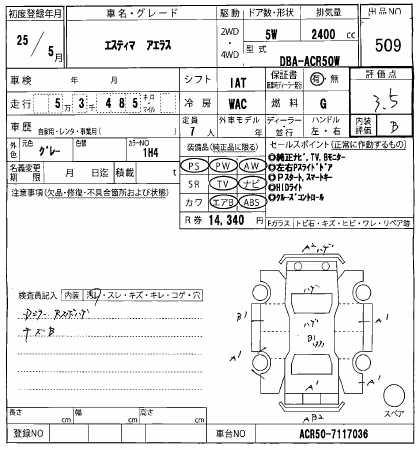 初度登録年月 車名・グレード 駆動 ドア数・形状 排気量 出品NO
25年 5月 エスティマ アエラス 2WD・4WD 5W 2400 cc 509
型式 DBA-ACR50W
車検 年 月 シフト IAT 保証書 有・無 評価点
走行 5万3千485 キロ・マイル 冷房 WAC 燃料 G 3.5
車歴 自家用・レンタ・事業用( ) 定員 7人 外車モデル 年 ディーラー・並行 ハンドル 左・右 内装評価 B
外色 元色 グレー 色替 カラーNO 1H4 装備品(純正品に限る) セールスポイント(正常に作動するもの)
名義変更期限 月 日迄 積載 t PS PW AW
◎純正ナビ,TV,Bモニター
◎左右Pスライドドア
注意事項(欠品・修復・不具合箇所および状態) SR TV ナビ
◎Pスタート,スマートキー
◎HIDライト
カワ エアB ABS ◎クルーズコントロール
R券 14,340 円 Fガラス トビ石・キズ・ヒビ・ワレ・リペア跡
A2 ハゲ
検査員記入 内装 汚れ・スレ・キズ・キレ・コゲ・穴
ハゲ
A1
キズB
B1
B1
A1
A1
A1
A1
AB2
スペア
長さ cm 幅 cm 高さ cm
登録NO 車台NO ACR50-7117036